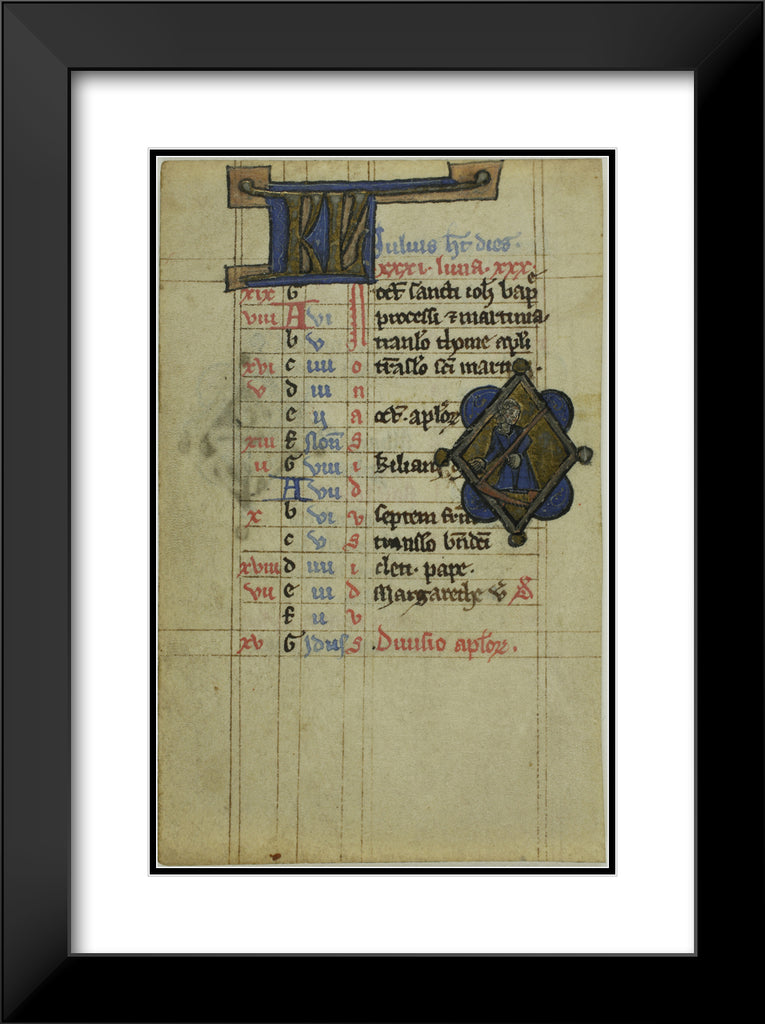 KL
Julius ht dies.
xxxi. luna. xxx.
xix G oct sancti ioh bap
viii A vi N processi ⁊ martinia.
b v translo thome apli
xvi c iiii o traslo sci martini.
v d iii n
e ii a oct. aplor
xiii f Non S
ii G viii i kiliani
A vii d
x b vi v septem frm
c v s translo bndci
xviii d iiii i cleti. pape.
vii e iii d Margarethe v S
f ii v
xv G Idus s Diuisio aplor.